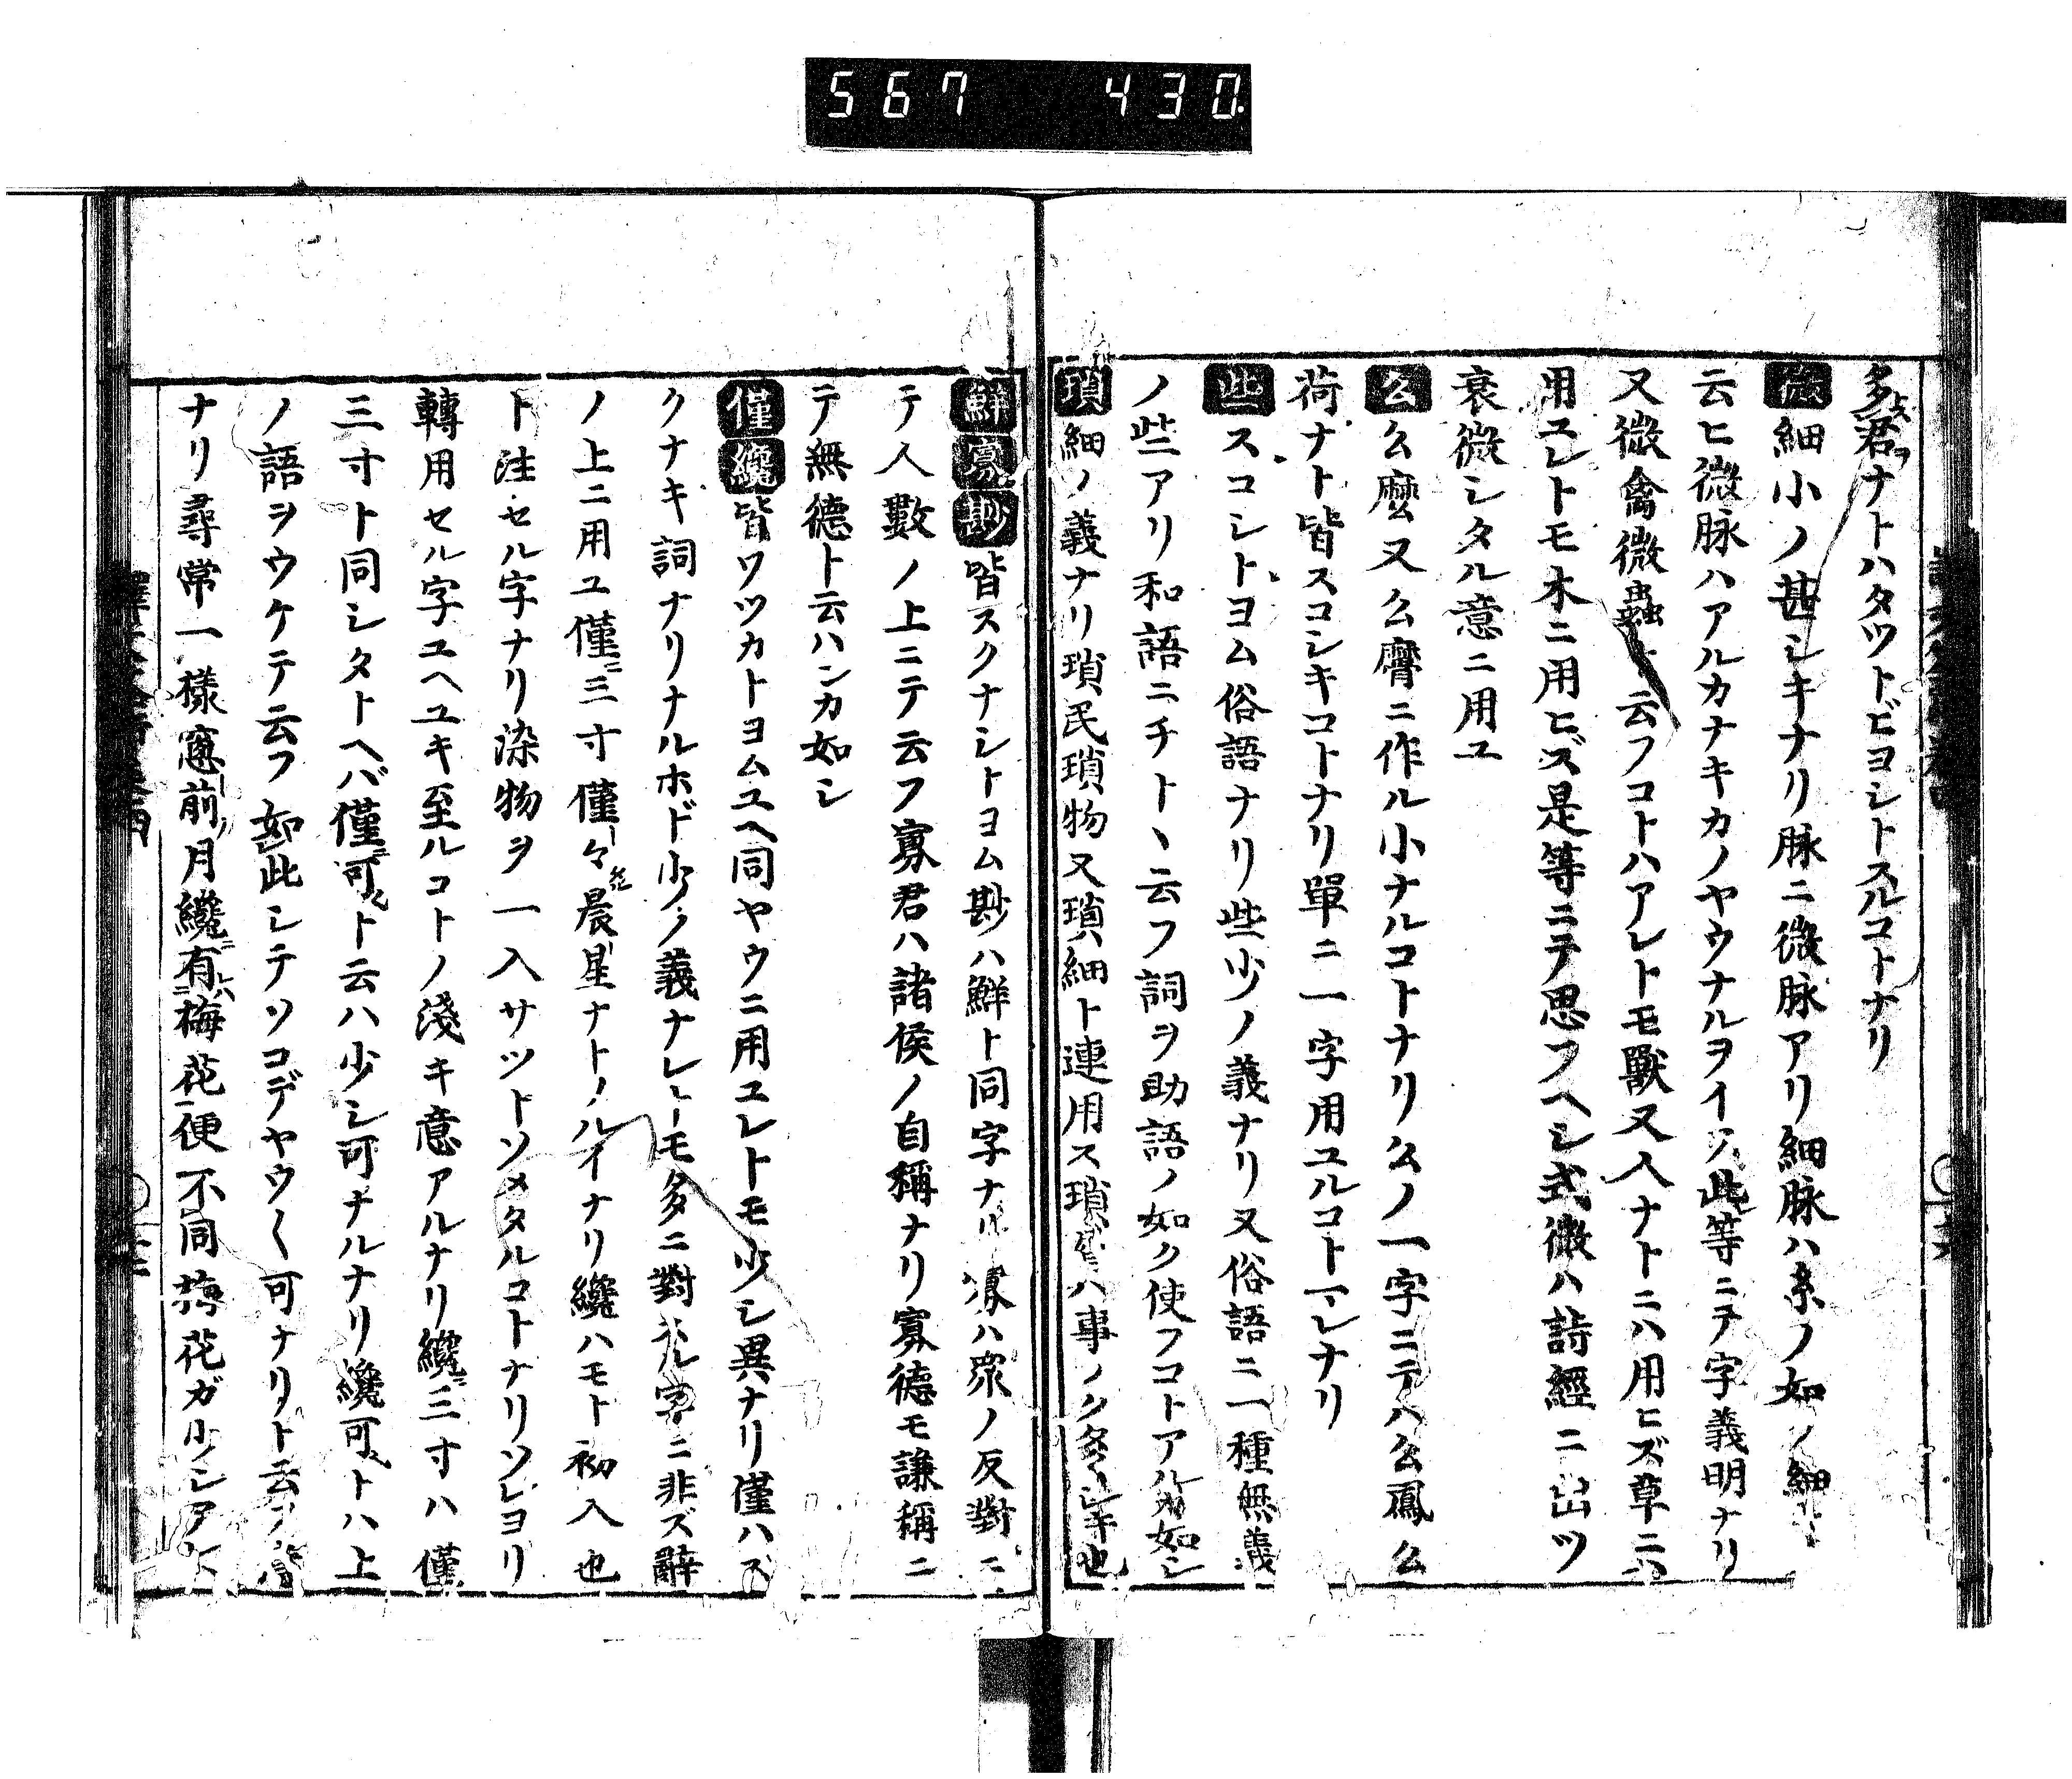 567 430
多君ナトハタツトビヨシトスルコトナリ
微 細小ノ甚シキナリ脉ニ微脉アリ細脉ハ糸ノ如ク細
云ヒ微脉ハアルカナキカノヤウナルヲイフ此等ニテ字義明ナリ
又微禽微蟲ト云フコトハアレトモ獸又人ナトニハ用ヒズ草ニハ
用ユレトモ木ニ用ヒズ是等ニテ思フヘシ式微ハ詩經ニ出ツ
衰微シタル意ニ用ユ
么 么麼又么麿ニ作ル小ナルコトナリ么ノ一字ニテハ么鳳么
荷ナト皆スコシキコトナリ單ニ一字用ユルコトマレナリ
些 スコシトヨム俗語ナリ些少ノ義ナリ又俗語ニ一種無義
ノ些アリ和語ニチトヽ云フ詞ヲ助語ノ如ク使フコトアルカ如シ
瑣 細ノ義ナリ瑣民瑣物又瑣細ト連用ス瑣ハ事ノク多キ也
鮮 寡 尠 皆スクナシトヨム尠ハ鮮ト同字ナリ寡ハ衆ノ反對ニ
テ人數ノ上ニテ云フ寡君ハ諸侯ノ自稱ナリ寡德モ謙稱ニ
テ無德ト云ハンカ如シ
僅 纔 皆ワツカトヨムユヘ同ヤウニ用ユレトモ少シ異ナリ僅ハス
クナキ詞ナリナルホド少ノ義ナレトモ多ニ對スル字ニ非ズ辭
ノ上ニ用ユ僅三寸僅々晨星ナトノルイナリ纔ハモト初入也
ト注セル字ナリ染物ヲ一入サツトソメタルコトナリソレヨリ
轉用セル字ユヘユキ至ルコトノ淺キ意アルナリ纔三寸ハ僅
三寸ト同シタトヘバ僅可ト云ハ少シ可ナルナリ纔可トハ上
ノ語ヲウケテ云フ如此シテソコデヤウ〱可ナリト云フ
ナリ尋常一樣窓前月纔有梅花便不同梅花ガ少シアレ